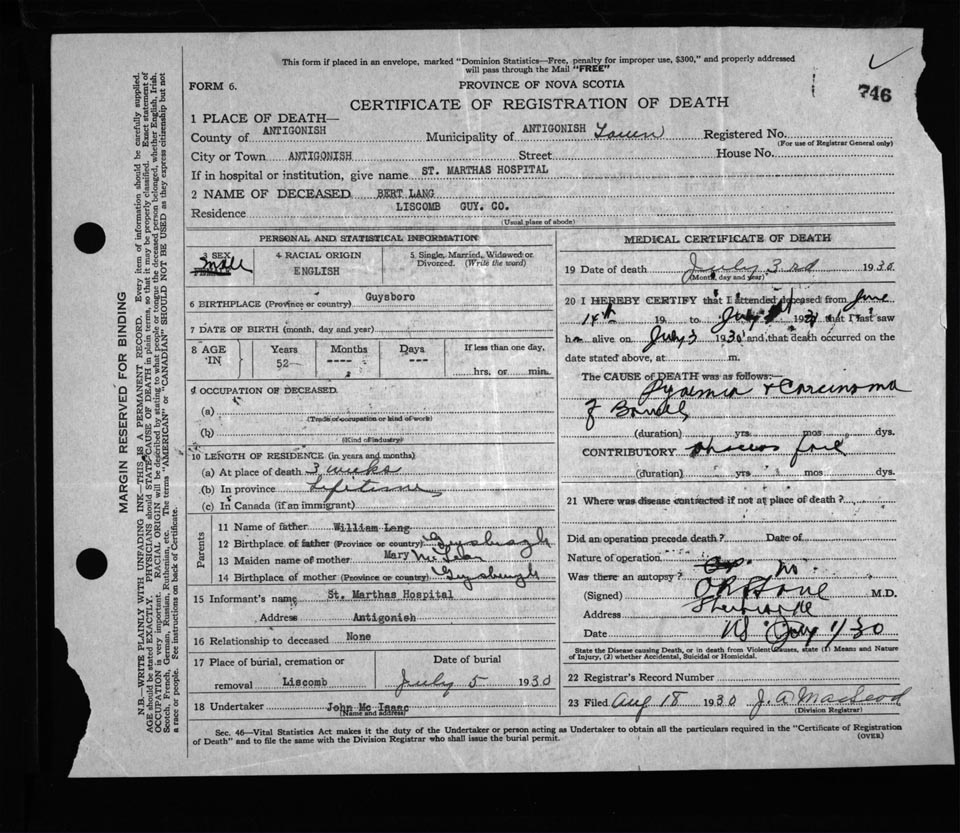 This form if placed in an envelope, marked "Dominion Statistics—Free, penalty for improper use, $300," and properly addressed
will pass through the Mail "FREE"
FORM 6.
PROVINCE OF NOVA SCOTIA
746
CERTIFICATE OF REGISTRATION OF DEATH
1 PLACE OF DEATH—
County of ANTIGONISH Municipality of ANTIGONISH Town Registered No.
(For use of Registrar General only)
City or Town ANTIGONISH Street House No.
If in hospital or institution, give name ST. MARTHAS HOSPITAL
2 NAME OF DECEASED BERT LANG
Residence LISCOMB GUY. CO.
(Usual place of abode)
PERSONAL AND STATISTICAL INFORMATION
3 SEX Male
4 RACIAL ORIGIN ENGLISH
5 Single, Married, Widowed or Divorced. (Write the word)
6 BIRTHPLACE (Province or country) Guysboro
7 DATE OF BIRTH (month, day and year)
8 AGE IN Years 52 Months ---- Days --- If less than one day, hrs. or min.
9 OCCUPATION OF DECEASED
(a)
(Trade of occupation or kind of work)
(b)
(Kind of industry)
10 LENGTH OF RESIDENCE (in years and months)
(a) At place of death 3 weeks
(b) In province Lifetime
(c) In Canada (if an immigrant)
Parents
11 Name of father William Lang
12 Birthplace of father (Province or country)
13 Maiden name of mother Mary
14 Birthplace of mother (Province or country)
15 Informant's name St. Marthas Hospital
Address Antigonish
16 Relationship to deceased None
17 Place of burial, cremation or removal Liscomb
Date of burial July 5 1930
18 Undertaker John Mc Isaac
(Name and address)
MEDICAL CERTIFICATE OF DEATH
19 Date of death July 3rd 1930
(Month, day and year)
20 I HEREBY CERTIFY that I attended deceased from June
14th 19 to July 192 that I last saw
h alive on July 3 1930 and that death occurred on the
date stated above, at m.
The CAUSE of DEATH was as follows:—
Pyaemia & Carcinoma
of Bowel
(duration) yrs. mos. dys.
CONTRIBUTORY
(duration) yrs mos dys.
21 Where was disease contracted if not at place of death?
Did an operation precede death? Date of
Nature of operation
Was there an autopsy? No
(Signed) M.D.
Address Sherbrooke
Date NS July 1/30
State the Disease causing Death, or in death from Violent Causes, state (1) Means and Nature
of Injury, (2) whether Accidental, Suicidal or Homicidal.
22 Registrar's Record Number
23 Filed Aug 18 1930 J. A. MacLeod
(Division Registrar)
Sec. 46—Vital Statistics Act makes it the duty of the Undertaker or person acting as Undertaker to obtain all the particulars required in the "Certificate of Registration
of Death" and to file the same with the Division Registrar who shall issue the burial permit.
(OVER)
MARGIN RESERVED FOR BINDING
N.B.—WRITE PLAINLY WITH UNFADING INK—THIS IS A PERMANENT RECORD. Every item of information should be carefully supplied.
AGE should be stated EXACTLY. PHYSICIANS should STATE CAUSE OF DEATH in plain terms, so that it may be properly classified. Exact statement of
OCCUPATION is very important. RACIAL ORIGIN will be described by stating to what people or tongue the deceased person belonged, whether English, Irish,
Scotch, French, German, Russian, Ruthenian, etc. The terms "AMERICAN" or "CANADIAN" SHOULD NOT BE USED as they express citizenship but not
a race or people. See instructions on back of Certificate.